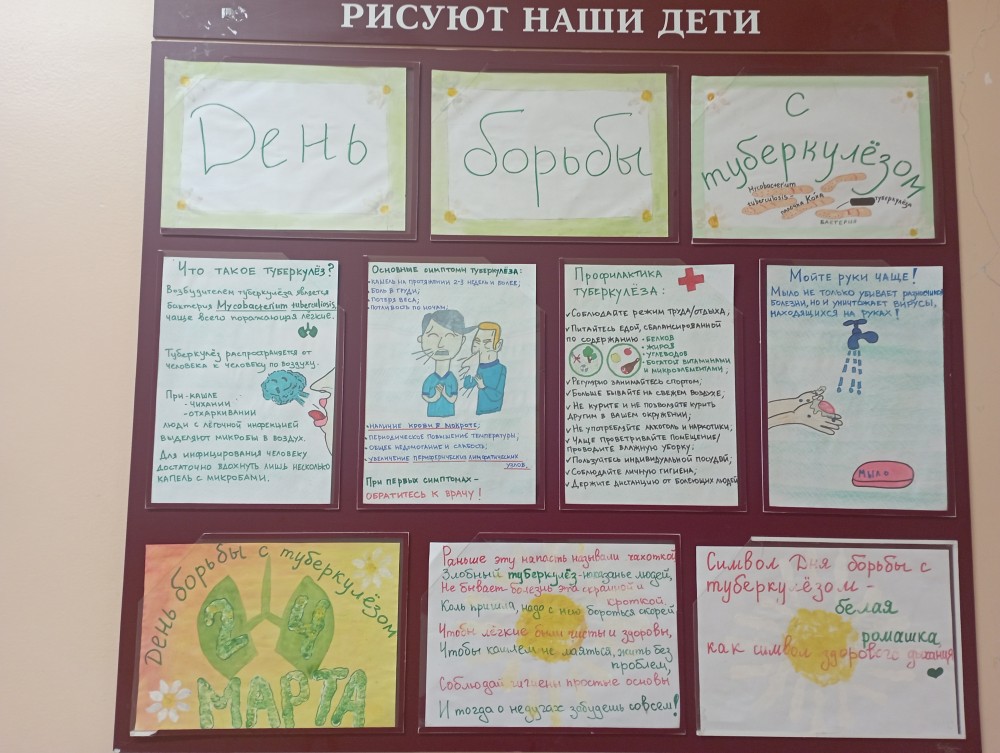 РИСУЮТ НАШИ ДЕТИ
День
борьбы
с
туберкулёзом
Mycobacterium
tuberculosis -
палочка Коха
туберкулёза
БАКТЕРИЯ
Что такое туберкулёз?
Возбудителем туберкулёза является
бактерия Mycobacterium tuberculosis,
чаще всего поражающая лёгкие.
Туберкулёз распространяется от
человека к человеку по воздуху.
При - кашле
- чихании
- отхаркивании
люди с лёгочной инфекцией
выделяют микробы в воздух.
Для инфицирования человеку
достаточно вдохнуть лишь несколько
капель с микробами.
Основные симптомы туберкулёза:
кашель на протяжении 2-3 недель и более;
боль в груди;
потеря веса;
потливость по ночам.
наличие крови в мокроте;
периодическое повышение температуры;
общее недомогание и слабость;
увеличение периферических лимфатических
узлов.
При первых симптомах -
ОБРАТИТЕСЬ К ВРАЧУ!
Профилактика
туберкулёза:
✓ Соблюдайте режим труда/отдыха,
✓ Питайтесь едой, сбалансированной
по содержанию - белков
- жиров
- углеводов
- богатой витаминами
и микроэлементами;
✓ Регулярно занимайтесь спортом;
✓ Больше бывайте на свежем воздухе;
✓ Не курите и не позволяйте курить
другим в вашем окружении;
✓ Не употребляйте алкоголь и наркотики;
✓ Чаще проветривайте помещение/
проводите влажную уборку;
✓ Пользуйтесь индивидуальной посудой;
✓ Соблюдайте личную гигиену;
✓ Держите дистанцию от болеющих людей
Мойте руки чаще!
Мыло не только убивает разносчиков
болезни, но и уничтожает вирусы,
находящихся на руках!
МЫЛО
День борьбы с туберкулёзом
24
МАРТА
Раньше эту напасть называли чахоткой
Злобный туберкулёз -
людей,
Не бывает болезнь эта скромной и
кроткой.
Коль пришла, надо с нею бороться скорей.
Чтобы лёгкие были чисты и здоровы,
Чтобы кашлем не маяться, жить без
проблем,
Соблюдай гигиены простые основы
И тогда о недугах забудешь совсем!
Символ Дня борьбы с
туберкулёзом -
белая
ромашка,
как символ здорового дыхания